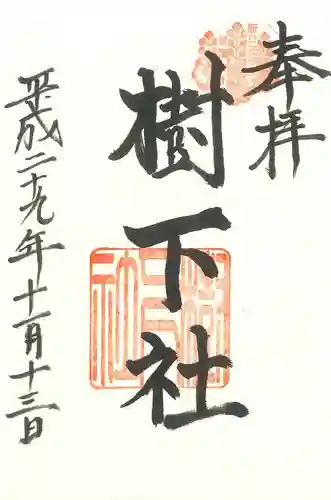 奉拝
樹下社
平成二十九年十一月十三日
樹下社